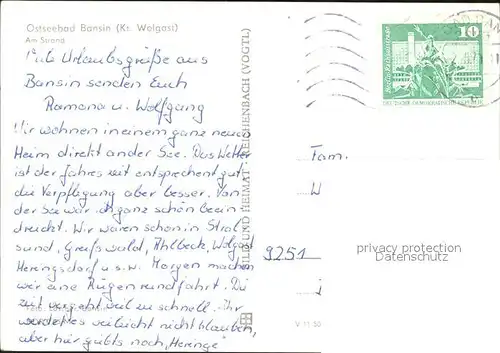 Ostseebad Bansin (Kr. Wolgast)
Am Strand
Gute Urlaubsgrüße aus
Bansin senden Euch
Ramona u. Wolfgang
Wir wohnen in einem ganz neuen
Heim direkt an der See. Das Wetter
ist der Jahres zeit entsprechent gut
die Verpflegung aber besser. Von
der See war ich ganz schön beein-
druckt. Wir waren schon in Stral
sund, Greifswald, Ahlbeck, Wolgast
Heringsdorf u.s.w. Morgen machen
wir eine Rügenrundfahrt. Die
Zeit vergeht viel zu schnell. Ihr
werdet es vielleicht nicht glauben,
aber hier gibts noch „Heringe"
BILD UND HEIMAT REICHENBACH (VOGTL)
V 11 50
10
DEUTSCHE DEMOKRATISCHE REPUBLIK
Fam.
W
9251
privacy protection
VIENNASTAMP.COM